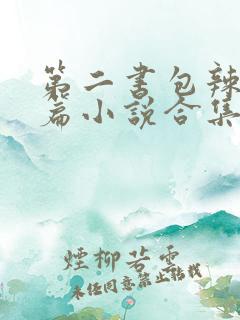 第二书包辣
篇小说合集
煙柳若雲
未经同意禁止转载